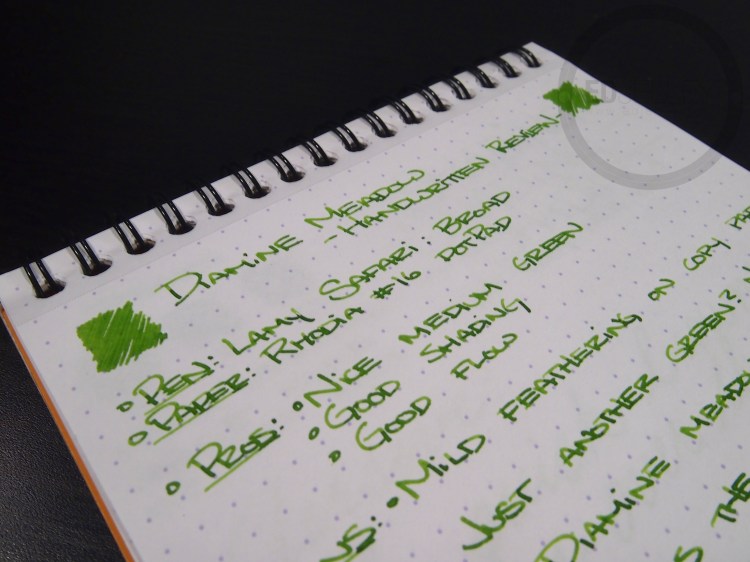 Diamine Meadow
- Handwritten Review -
• Pen: Lamy Safari: Broad
• Paper: Rhodia #16 DotPad
• Pros: • Nice medium green
• Good shading
• Good flow
• Mild feathering on copy
Just another green?
Diamine
the